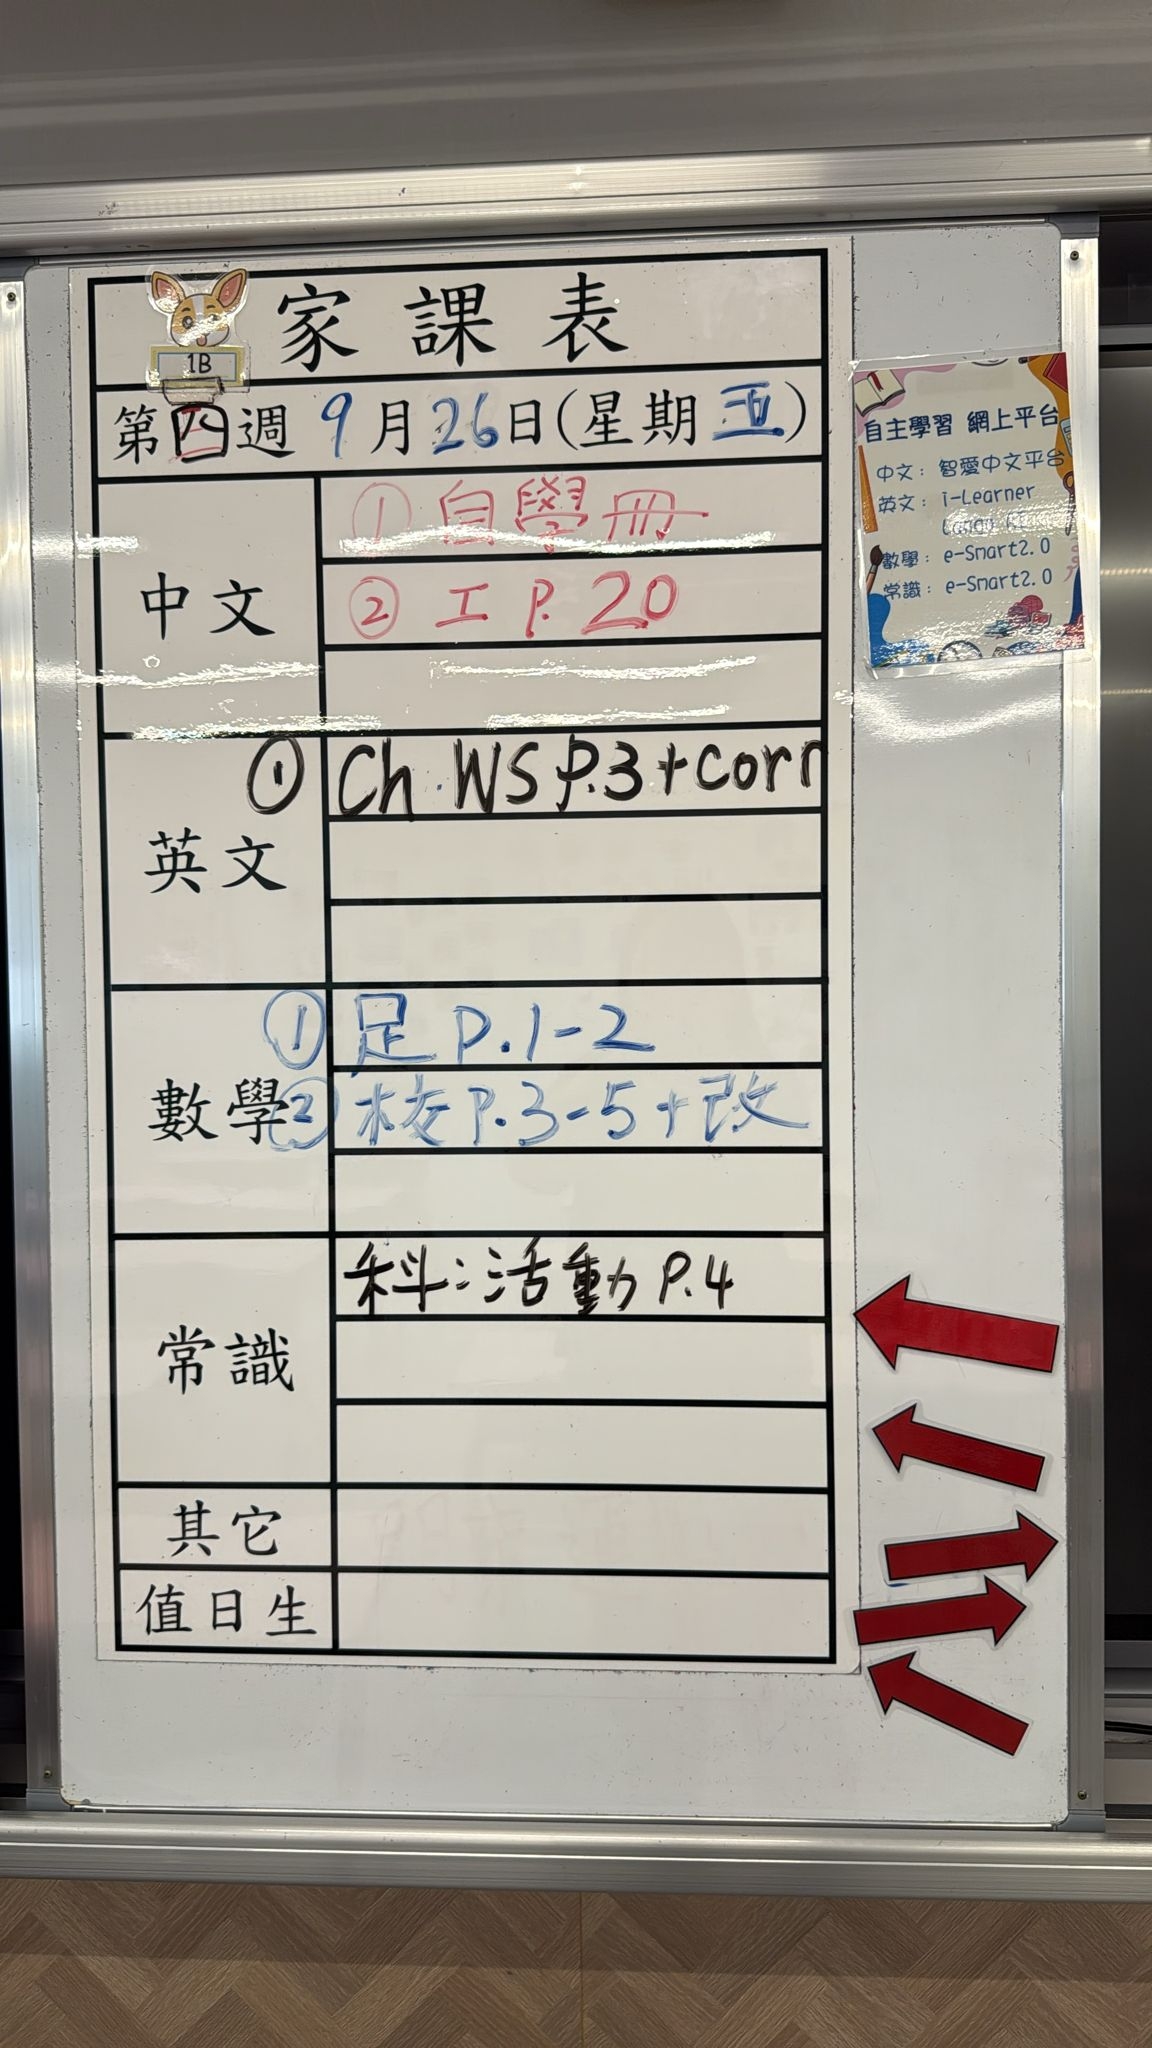 家課表
1B
第四週 9月26日(星期五)
中文
① 自學冊
② 工 P. 20
英文
① Ch WS P.3 + corr
數學
① 足 P.1-2
② 校 P.3-5 + 改
常識
科：活動 P.4
其它
值日生
自主學習 網上平台
中文：智愛中文平台
英文：i-Learner
數學：e-Smart2.0
常識：e-Smart2.0